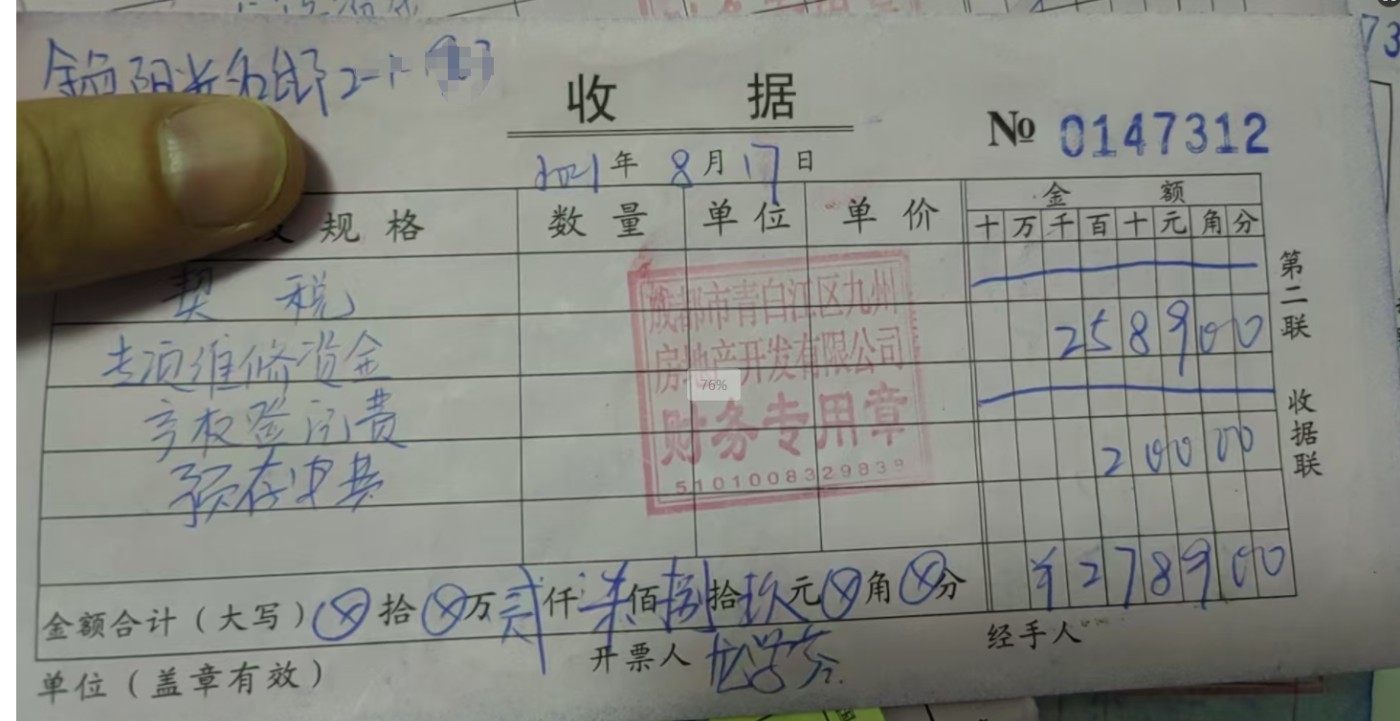 阳光名邸2-1-
收据
№ 0147312
2021年8月17日
规格 数量 单位 单价 金额
十万千百十元角分
契税
专项维修资金 258900
产权登记费
预存中央 20000
成都市青白江区九州
房地产开发有限公司
财务专用章
5101008329839
76%
金额合计（大写）ⓧ拾ⓧ万贰仟柒佰捌拾玖元ⓧ角ⓧ分 ¥278900
单位（盖章有效） 开票人 经手人
第二联 收据联